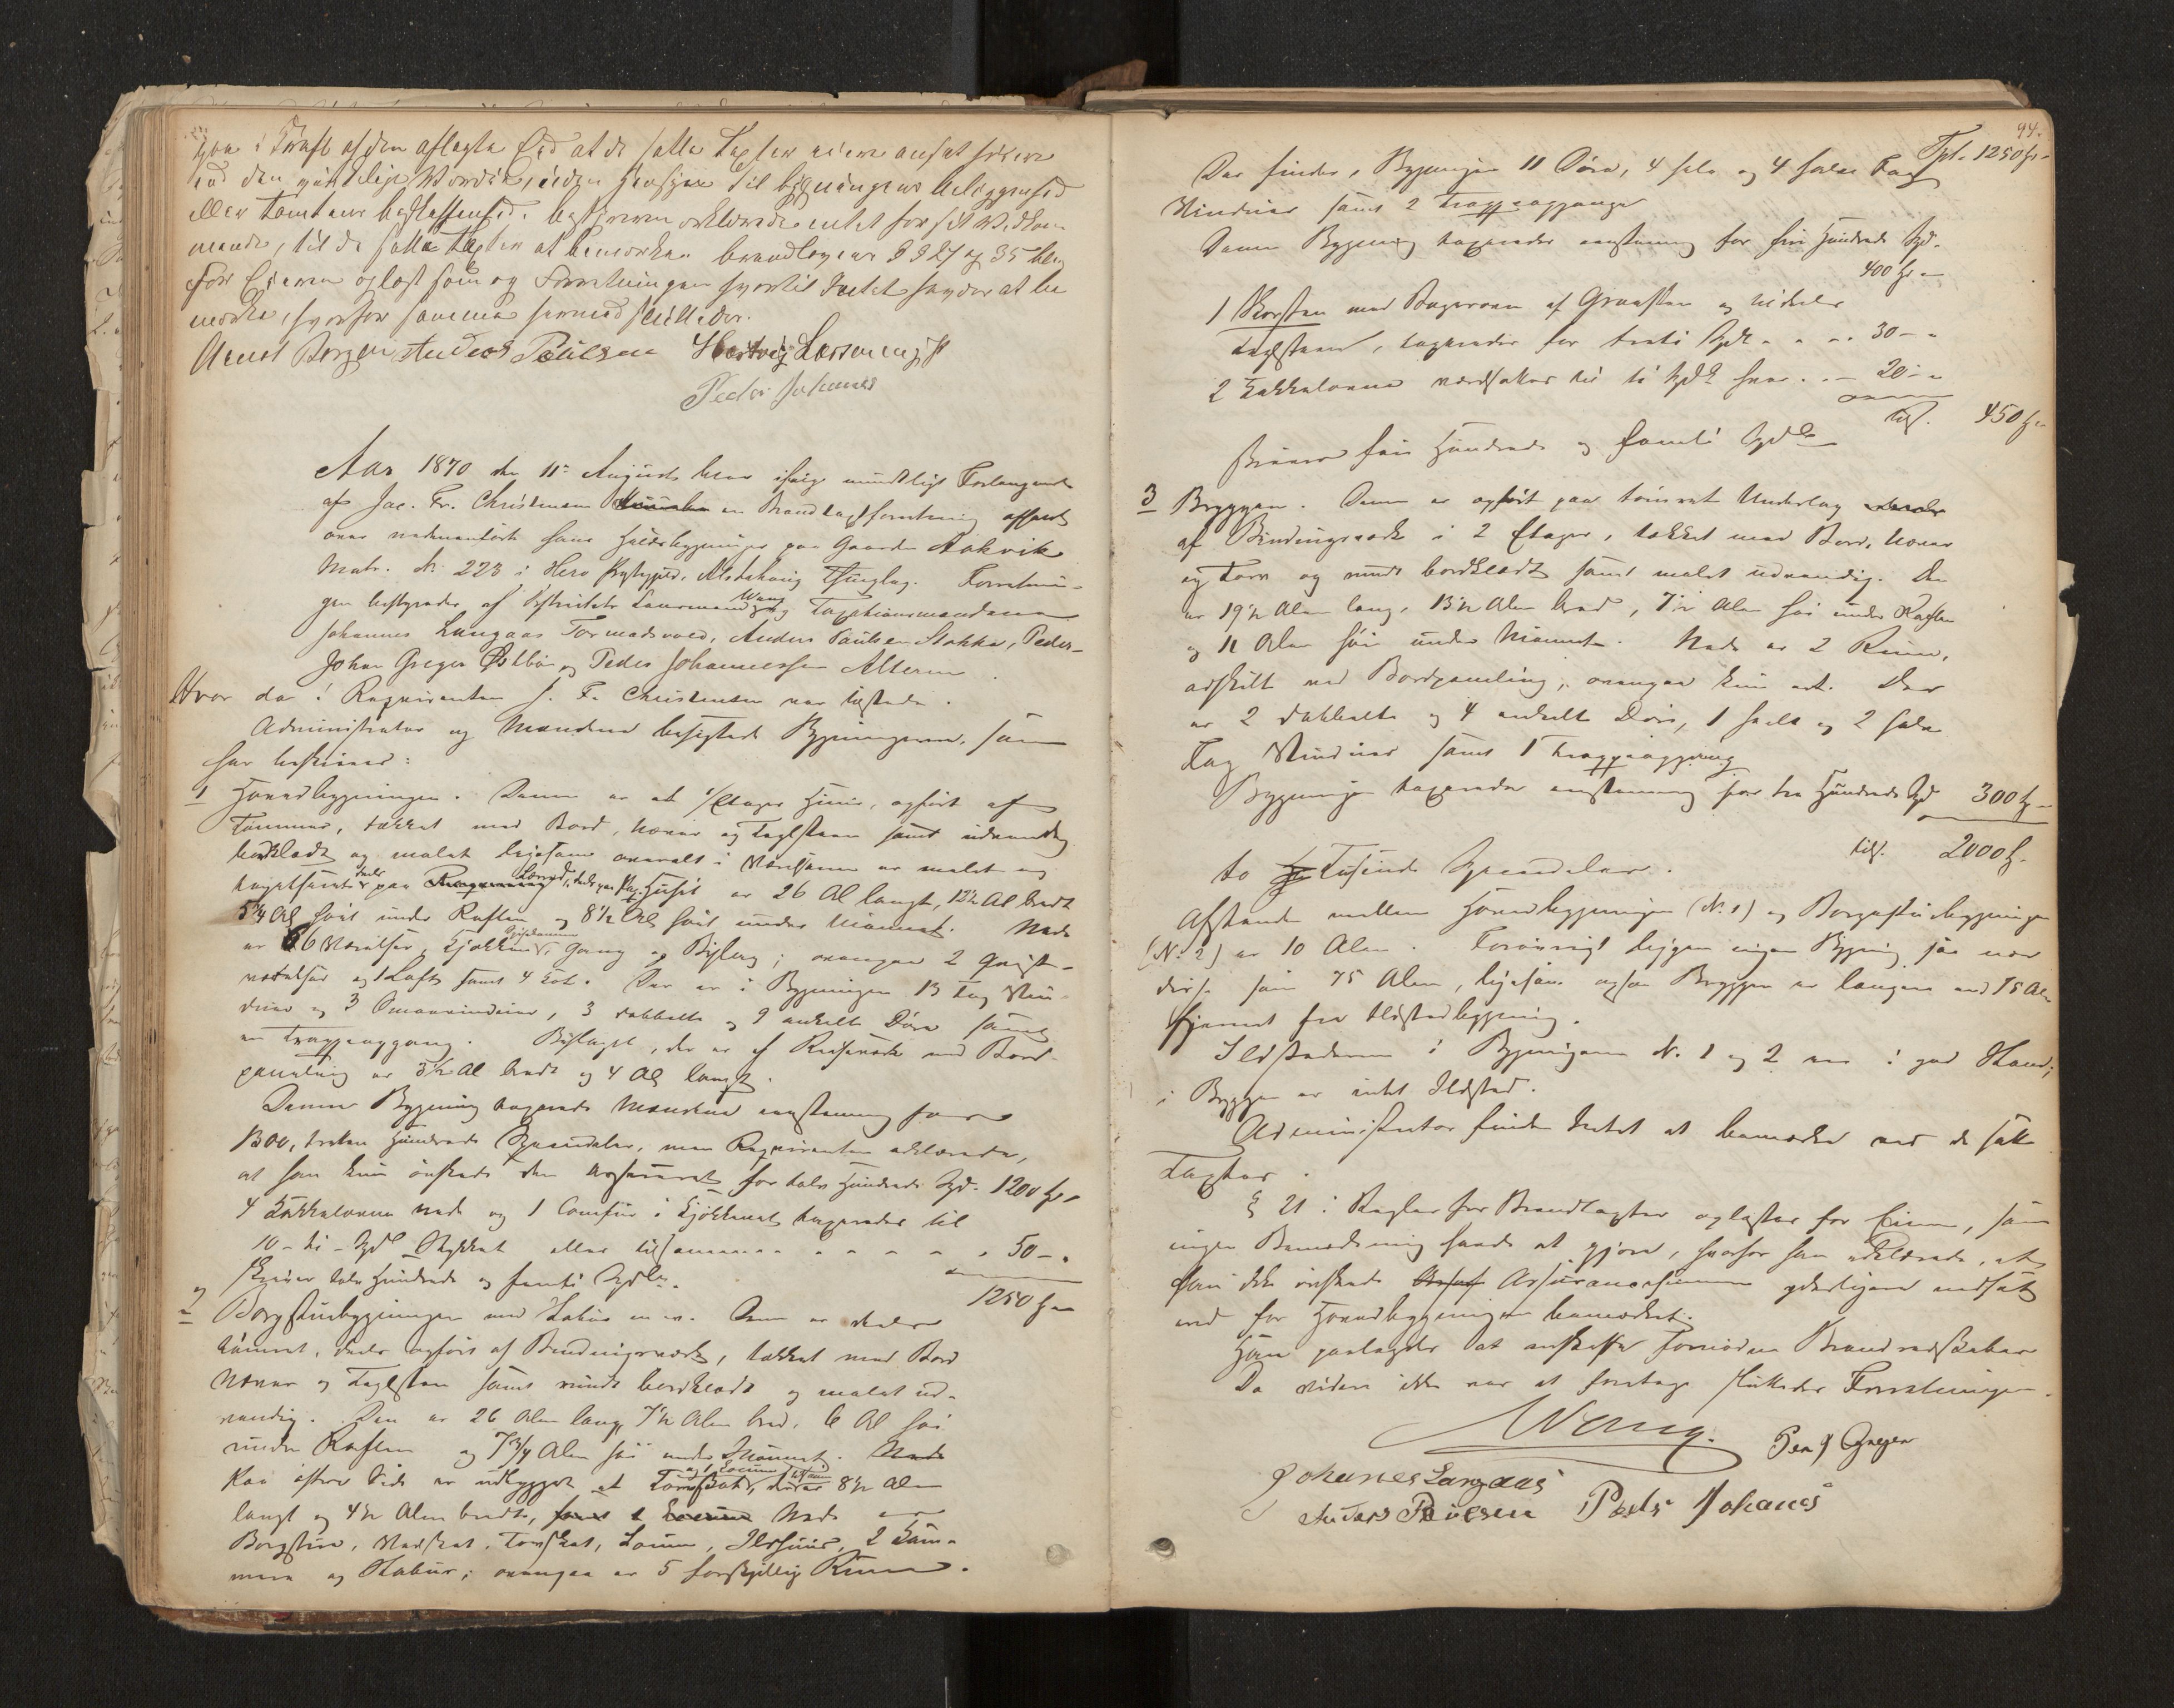 i Kraft af den aflagte Eed at de satte Taxter ei ere ansat høiere
end den gjældelige Værdie, uden Hensyn til bygningens beliggenhed
eller Tomtens beskaffenhed. bestyreren erklærede intet for sit Vedkom-
mende, til de satte Taxter at bemærke. brandlovens §§ 27 og 35 blev
for Eieren oplæst som og Forretningen hvortil Intet havdes at be
mærke, hvorfor samme hermed sluttedes.
Arent Borgen Anders Paulsen Hartvig Larssen
Peder Johannes
Aar 1870 den 11te August blev ifølge mundtligt Forlangende
af Jac. Fr. Christensen en Brandtaxtforretning afholdt
over nedennævnte hans Huusbygninger paa Gaarden Aakvik
Matr. No 223 i Herø Præstegjeld, Alstahaug Thinglag. Forretnin-
gen bestyredes af Distriktets Lensmand Wang og Taxationsmændene
Johannes Langaas Tormodsvold, Anders Paulsen Stokka, Peder-
Johan Greger Østbø og Peder Johannessen Alteren.
Hvor da! Requirenten J. F. Christensen var tilstede.
Administrator og Mændene besigtede Bygningerne, som
her beskrives:
1 Hovedbygningen. Denne er et 1 Etages Huus, opført af
Tømmer, tækket med Bord, Næver og Taglsteen samt udvendig
bordklædt og malet ligesom overalt i Værelserne er malet og
tapetseret dels paa Lærred, dels paa Pap. Huset er 26 Al langt, 12½ Al bredt
5¼ Al høit under Raften og 8½ Al høit under Mønnet. Nede
er 6 Værelser, Kjøkken, Spiskammer, Gang og Bislag; ovenpaa 2 Qvist-
værelser og 1 Loft samt 4 Kot. Der er i Bygningen 13 Fag Vin-
duer og 3 Smaavinduer, 3 dobbelte og 9 enkelte Døre samt
en Trappeopgang. Bislaget, der er af Reisværk med Bord-
paneling er 3½ Al bredt og 4 Al langt.
Denne Bygning taxerede Mændene eenstemmig for
1300, tretten Hundrede Speciedaler, men Requirenten erklærede,
at han kun ønskede den assureret for tolv Hundrede Spd. 1200 Spd
4 Kakkelovne nede og 1 Comfur i Kjøkkenet taxeredes til
10 - ti - Spd Stykket eller tilsammen - - - - - - 50 - "
skriver tolv Hundrede og femti Spdlr.
1250 Spd
2 Borgstuebygningen med Stabur m. v. Denne er deels
tømret, deels opført af Bindingsværk, tækket med Bord
Næver og Taglsteen samt rundt bordklædt og malet ud-
vendig. Den er 26 Alen lang, 7½ Alen bred, 6 Al høi
under Raften og 7¾ Alen høi under Mønnet. Nede
Paa østre Side er udbygget et Torvskot og 1 Locum, tilsam 8½ Alen
langt og 4½ Alen bredt, samt 1 Locum Nede er
Borgstue, Vedskot, Torvskot, Locum, Ildhuus, 2 Kam-
mere og Stabur; ovenpaa er 5 forskjellige Rum.
94.
Tpt. 1250 Spd
Der findes i Bygningen 11 Døre, 4 hele og 4 halve Fag
Vinduer samt 2 Trappeopgange
Denne Bygning taxeredes eenstemmig for fire Hundrede Spd.
400 Spd
1 Skorsten med Bagerovn af Graasten og
Taglsteen, taxeredes for tredive Spd - - - 30 - "
2 Kakkelovne værdsattes til ti Spd hver . . - 20 - "
tils. 450 Spd
skriver fire Hundrede og femti Spdlr
3 Bryggen. Denne er opført paa tømret Underlag
af Bindingsværk i 2 Etager, tækket med Bord, Næver
og Torv og rundt bordklædt samt malet udvendig. Den
er 19½ Alen lang, 13½ Alen bred, 7½ Alen høi under Raften
og 11 Alen høi under Mønnet. Nede er 2 Rum,
adskilt med Bordpaneling; ovenpaa kun eet. Der
er 2 dobbelte og 4 enkelte Døre, 1 heelt og 2 halve
Fag Vinduer samt 1 Trappeopgang
Bygningen taxeredes eenstemmig for tre Hundrede Spd 300 Spd
tils. 2000 Spd
to Tusinde Speciedaler.
Afstanden mellem Hovedbygningen (No. 1) og Borgestuebygningen
(No. 2) er 10 Alen. Forøvrigt ligger ingen Bygning saa nær
disse som 75 Alen, ligesom ogsaa Bryggen er længere end 75 Alen
fjernet fra Ildstedbygning.
Ildstederne i Bygningerne No. 1 og 2 ere i god Stand;
i Bryggen er intet Ildsted.
Administrator finder Intet at bemærke ved de satte
Taxter.
§ 21 i Regler for Brandtaxter oplæstes for Eieren, som
ingen Bemærkning havde at gjøre, hvorhos han erklærede, at
han ikke ønskede Assurancesummen yderligere nedsat
end for Hovedbygningen bemærket.
Han paalagdes at anskaffe fornødne Brandredskaber
Da videre ikke var at foretage sluttedes Forretningen.
Wang. Peu J Greger
Johanes Langaas
Anders Paulsen Peder Johanes